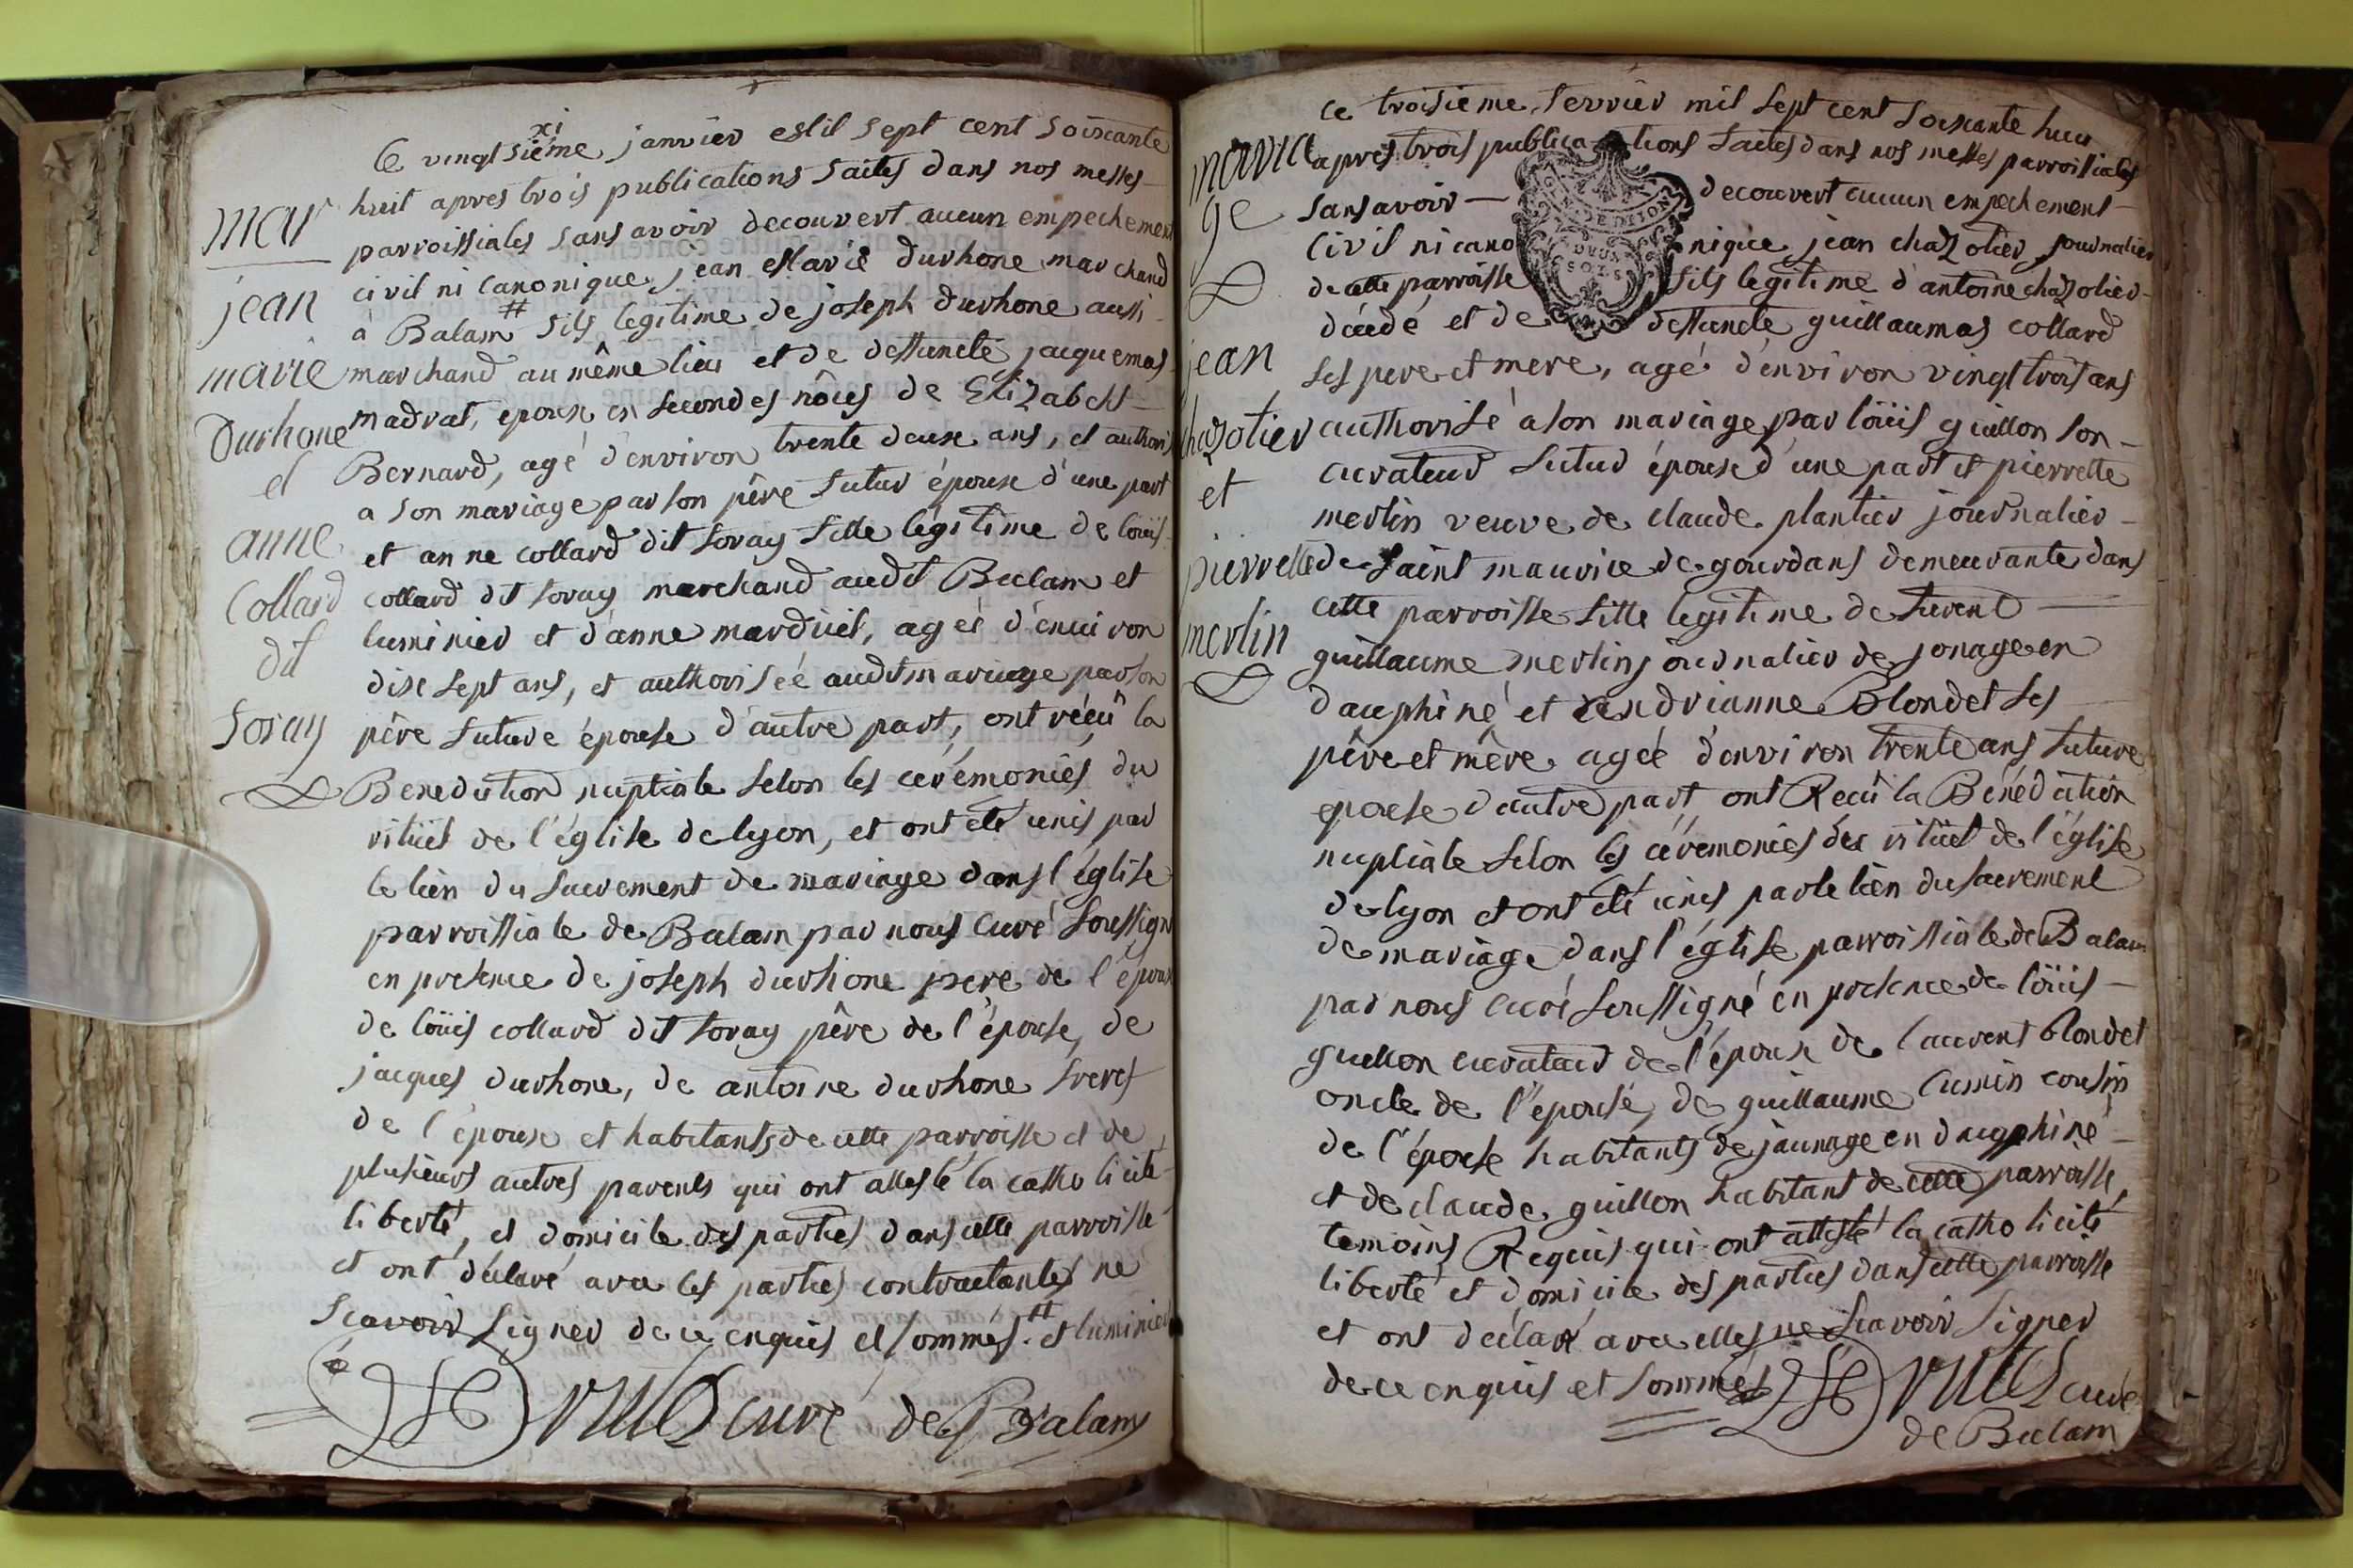 xi
Ce vingt sième janvier mil sept cent soixante
huit apres trois publications faites dans nos messes
parroissiales sans avoir decouvert aucun empechement
civil ni canonique, jean Marie durhone marchand
à Balam # fils legitime de joseph durhone aussi
marchand au même lieu et de deffuncte jacquemas
madrat, epoux en secondes nôces de Elizabeth
Bernard, agé d'environ trente deux ans, et authorisé
a son mariage par son père futur époux d'une part
et anne collard dit foray fille légitime de loüis
collard dit foray marchand audit Balam et
luminier et d'anne marduel, agée d'environ
dix sept ans, et authorisée audit mariage par son
père future épouse d'autre part, ont réçû la
Benediction nuptiale selon les cérémonies du
ritüel de l'église de lyon, et ont été unis par
le lien du sacrement de mariage dans l'église
parroissiale de Balam par nous curé soussigné
en presence de joseph durhone pere de l'époux
de loüis collard dit foray père de l'épouse, de
jacques durhone, de antoine durhone freres
de l'époux et habitants de cette parroisse et de
plusieurs autres parents qui ont attesté la catholicité
liberté, et domicile des parties dans cette parroisse
et ont déclaré avec les parties contractantes ne
scavoir signer de ce enquis et sommés. # et luminier
curé de Balam
mar
jean
marie
Durhone
et
anne
Collard
dit
foray
ce troisieme fevrier mil sept cent soixante huit
apres trois publications faites dans nos messes parroissiales
sans avoir decouvert aucun empechement
civil ni canonique jean chazotier journalier
de cette parroisse fils legitime d'antoine chazotier
décédé et de deffuncte guillaumas collard
ses pere et mere, agé d'environ vingt trois ans
authorisé a son mariage par loüis guillon son
curateur futur époux d'une part et pierrette
merlin veuve de claude plantier journalier
de saint maurice de gourdans demeurante dans
cette parroisse fille legitime de furent
guillaume merlin journalier de jonage en
dauphiné et andrianne Blondet ses
père et mère agée d'environ trente ans future
epouse d'autre part, ont Reçû la Bénédiction
nuptiale selon les cérémonies du ritüel de l'église
de lyon et ont été unis par le lien du sacrement
de mariage dans l'église parroissiale de Balam
par nous curé soussigné en presence de loüis
guillon curateur de l'époux de laurent blondet
oncle de l'épouse, de guillaume cusin cousin
de l'épouse habitants de jaunage en dauphiné
et de claude guillon habitant de cette parroisse,
temoins Requis qui ont attesté la catholicité
liberté et domicile des parties dans cette parroisse
et ont déclaré avec elles ne scavoir signer
de ce enquis et sommés
curé
de Balam
maria
ge
jean
chazotier
et
pierrette
merlin
DE DIJON
DEUX
SOLS